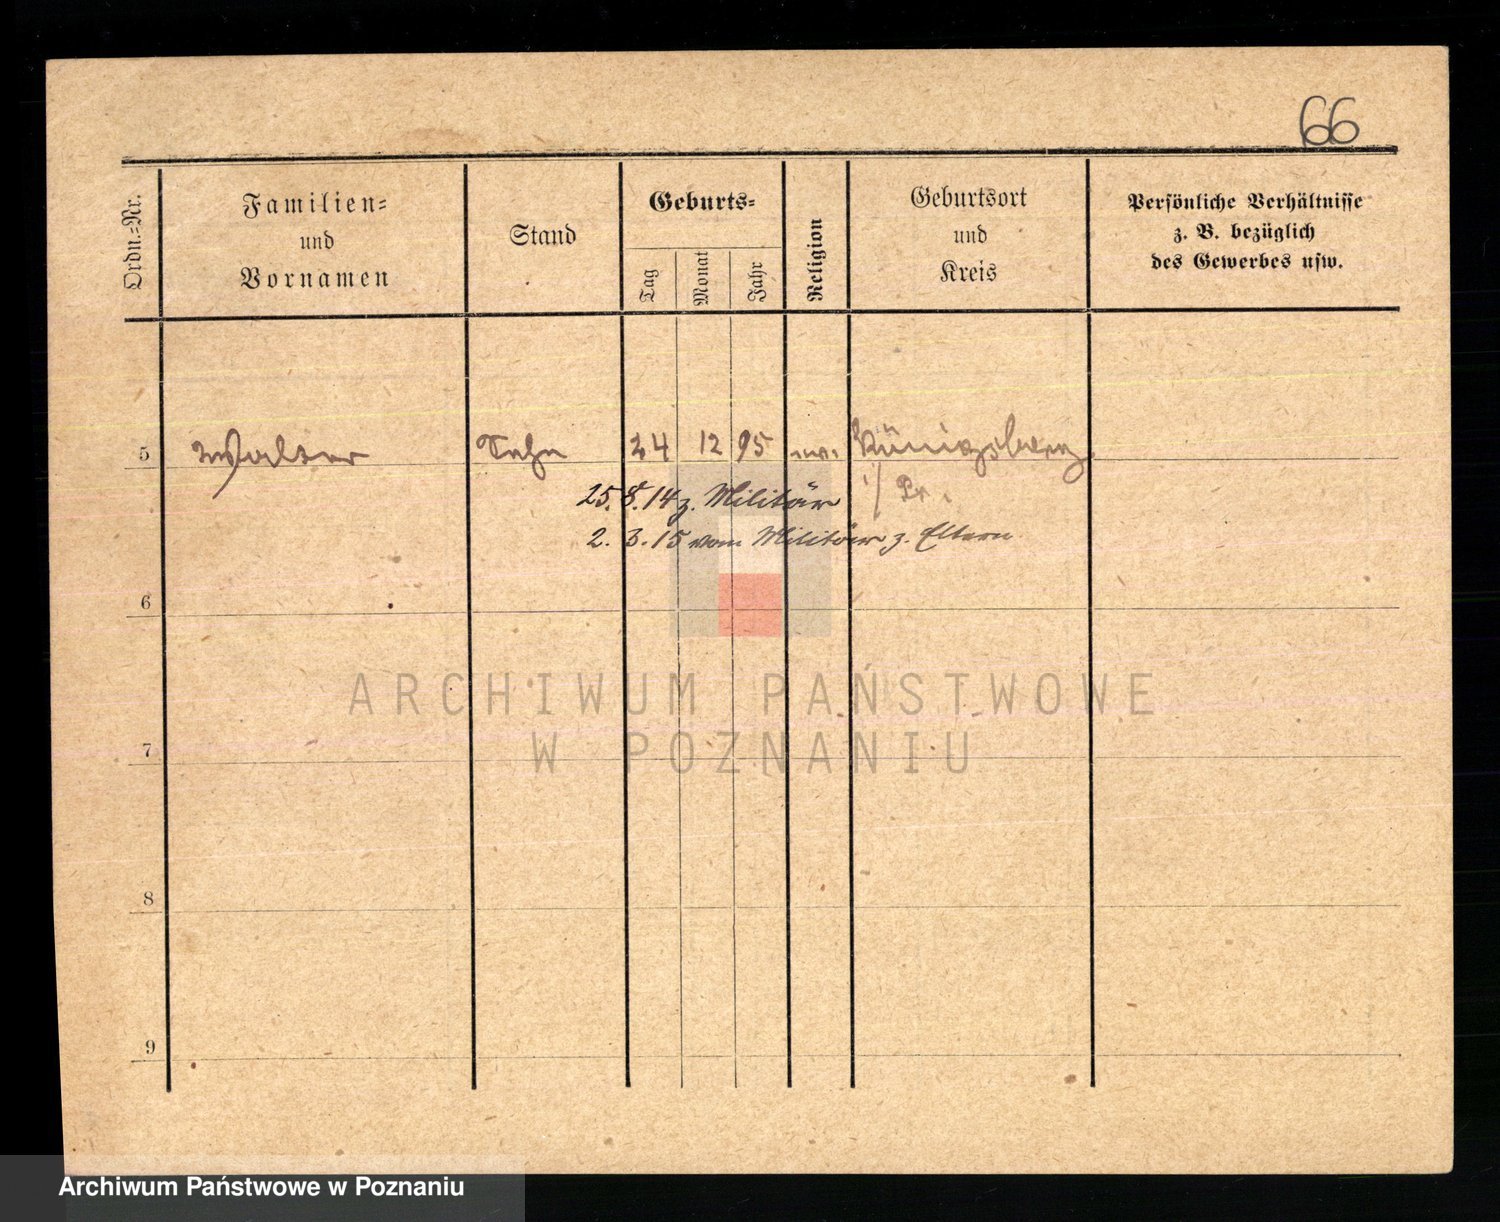 66
Ordn.-Nr.
Familien-
und
Vornamen
Stand
Geburts-
Tag
Monat
Jahr
Religion
Geburtsort
und
Kreis
Persönliche Verhältnisse
z. B. bezüglich
des Gewerbes usw.
5 Walter Sohn 24 12 95 Königsberg
i/Pr.
25. 8. 14 z. Militär
2. 3. 15 vom Militär z. Eltern
6
7
8
9
ARCHIWUM PAŃSTWOWE
W POZNANIU
Archiwum Państwowe w Poznaniu